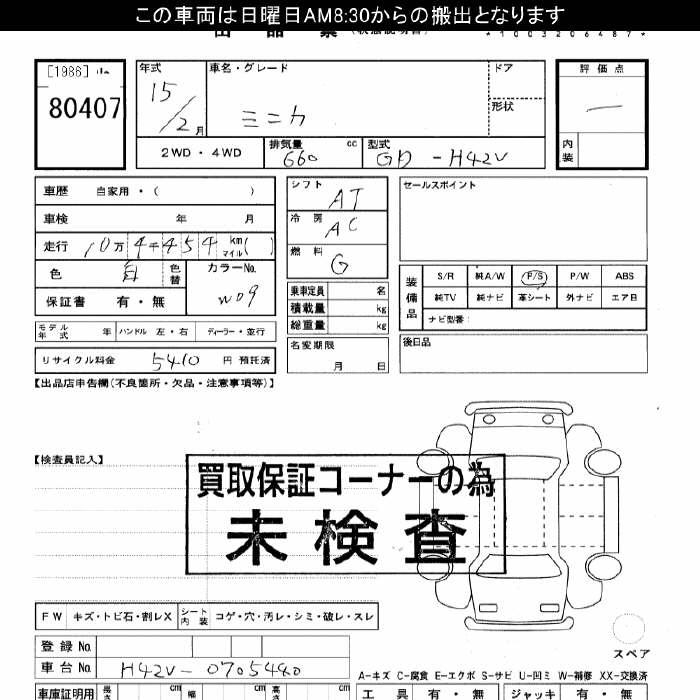 この車両は日曜日AM8:30からの搬出となります
出品票(状態説明書) *1003206487*
[1986]
80407
年式 15/2月
車名・グレード ミニカ
ドア
形状
評価点 一
内装
2WD・4WD
排気量 660 cc
型式 GD-H42V
車歴 自家用・( )
シフト AT
セールスポイント
車検 年 月
冷房 AC
走行 10万4千454km マイル( )
燃料 G
色 白 色替
カラーNo. W09
保証書 有・無
乗車定員 名
積載量 kg
総重量 kg
装備品
S/R 純A/W P/S P/W ABS
純TV 純ナビ 革シート 外ナビ エア日
ナビ型番:
モデル年式 年 ハンドル 左・右 ディーラー・並行
名変期限 月 日
後日品
リサイクル料金 5410 円 預託済
【出品店申告欄(不良箇所・欠品・注意事項等)】
【検査員記入】
買取保証コーナーの為
未検査
FW キズ・トビ石・割レX シート内装 コゲ・穴・汚レ・シミ・破レ・スレ
スペア
登録No.
車台No. H42V-0705440
A-キズ C-腐食 E-エクボ S-サビ U-凹ミ W-補修 XX-交換済
車庫証明用 長さ cm 幅 cm 高さ cm
工具 有・無 ジャッキ 有・無